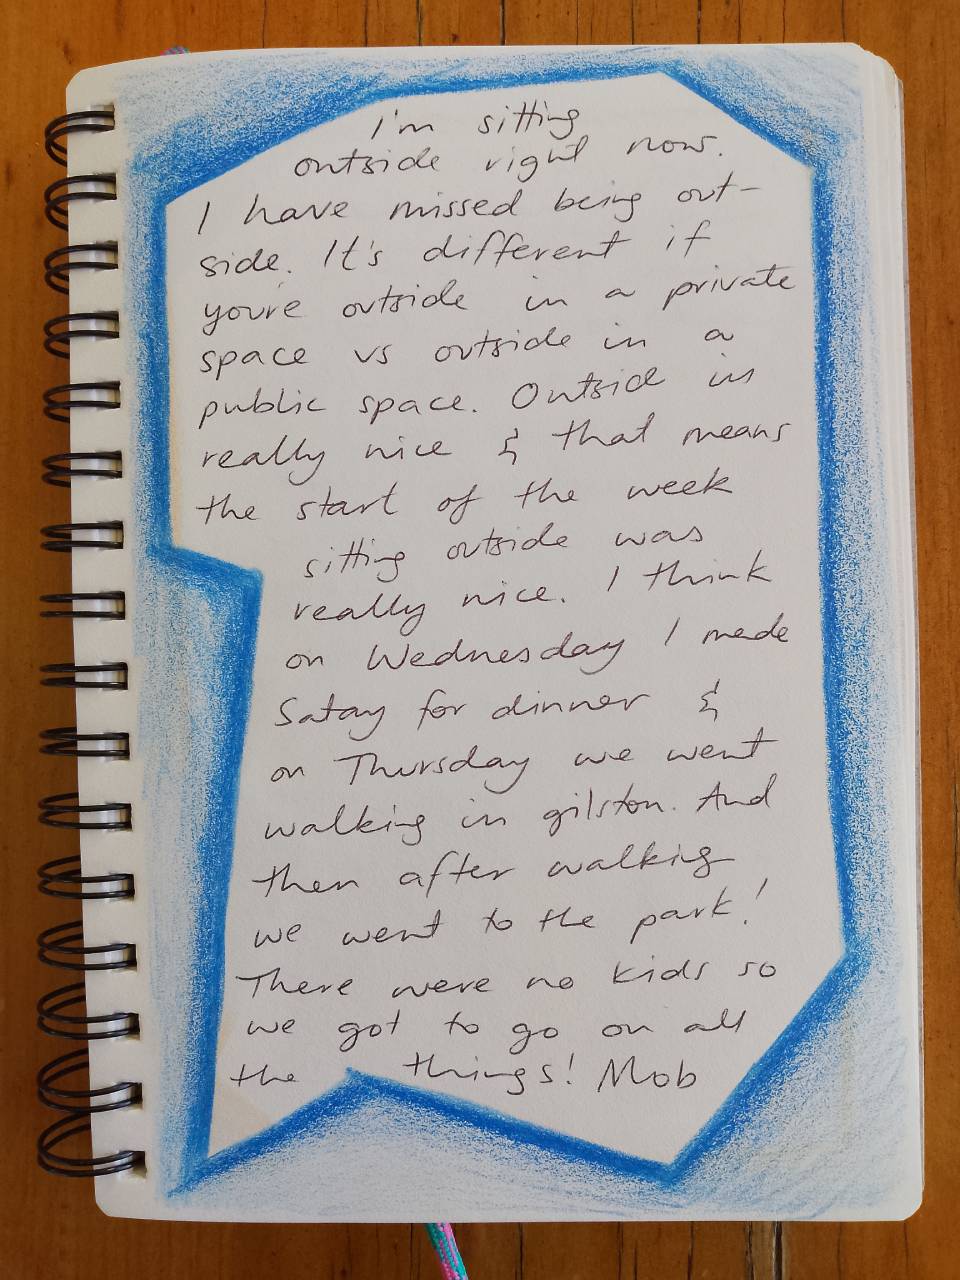 I'm sitting
outside right now.
I have missed being out-
side. It's different if
you're outside in a private
space vs outside in a
public space. Outside in
really nice & that means
the start of the week
sitting outside was
really nice. I think
on Wednesday I made
Satay for dinner &
on Thursday we went
walking in gilston. And
then after walking
we went to the park!
There were no kids so
we got to go on all
the things! Mob